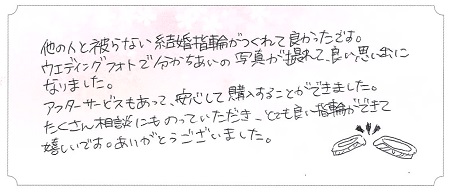 他の人と被らない結婚指輪がつくれて良かったです。
ウエディングフォトで分かちあいの写真が撮れて、良い思い出に
なりました。
アフターサービスもあって、安心して購入することができました。
たくさん相談にものっていただき、とても良い指輪ができて
嬉しいです。ありがとうございました。